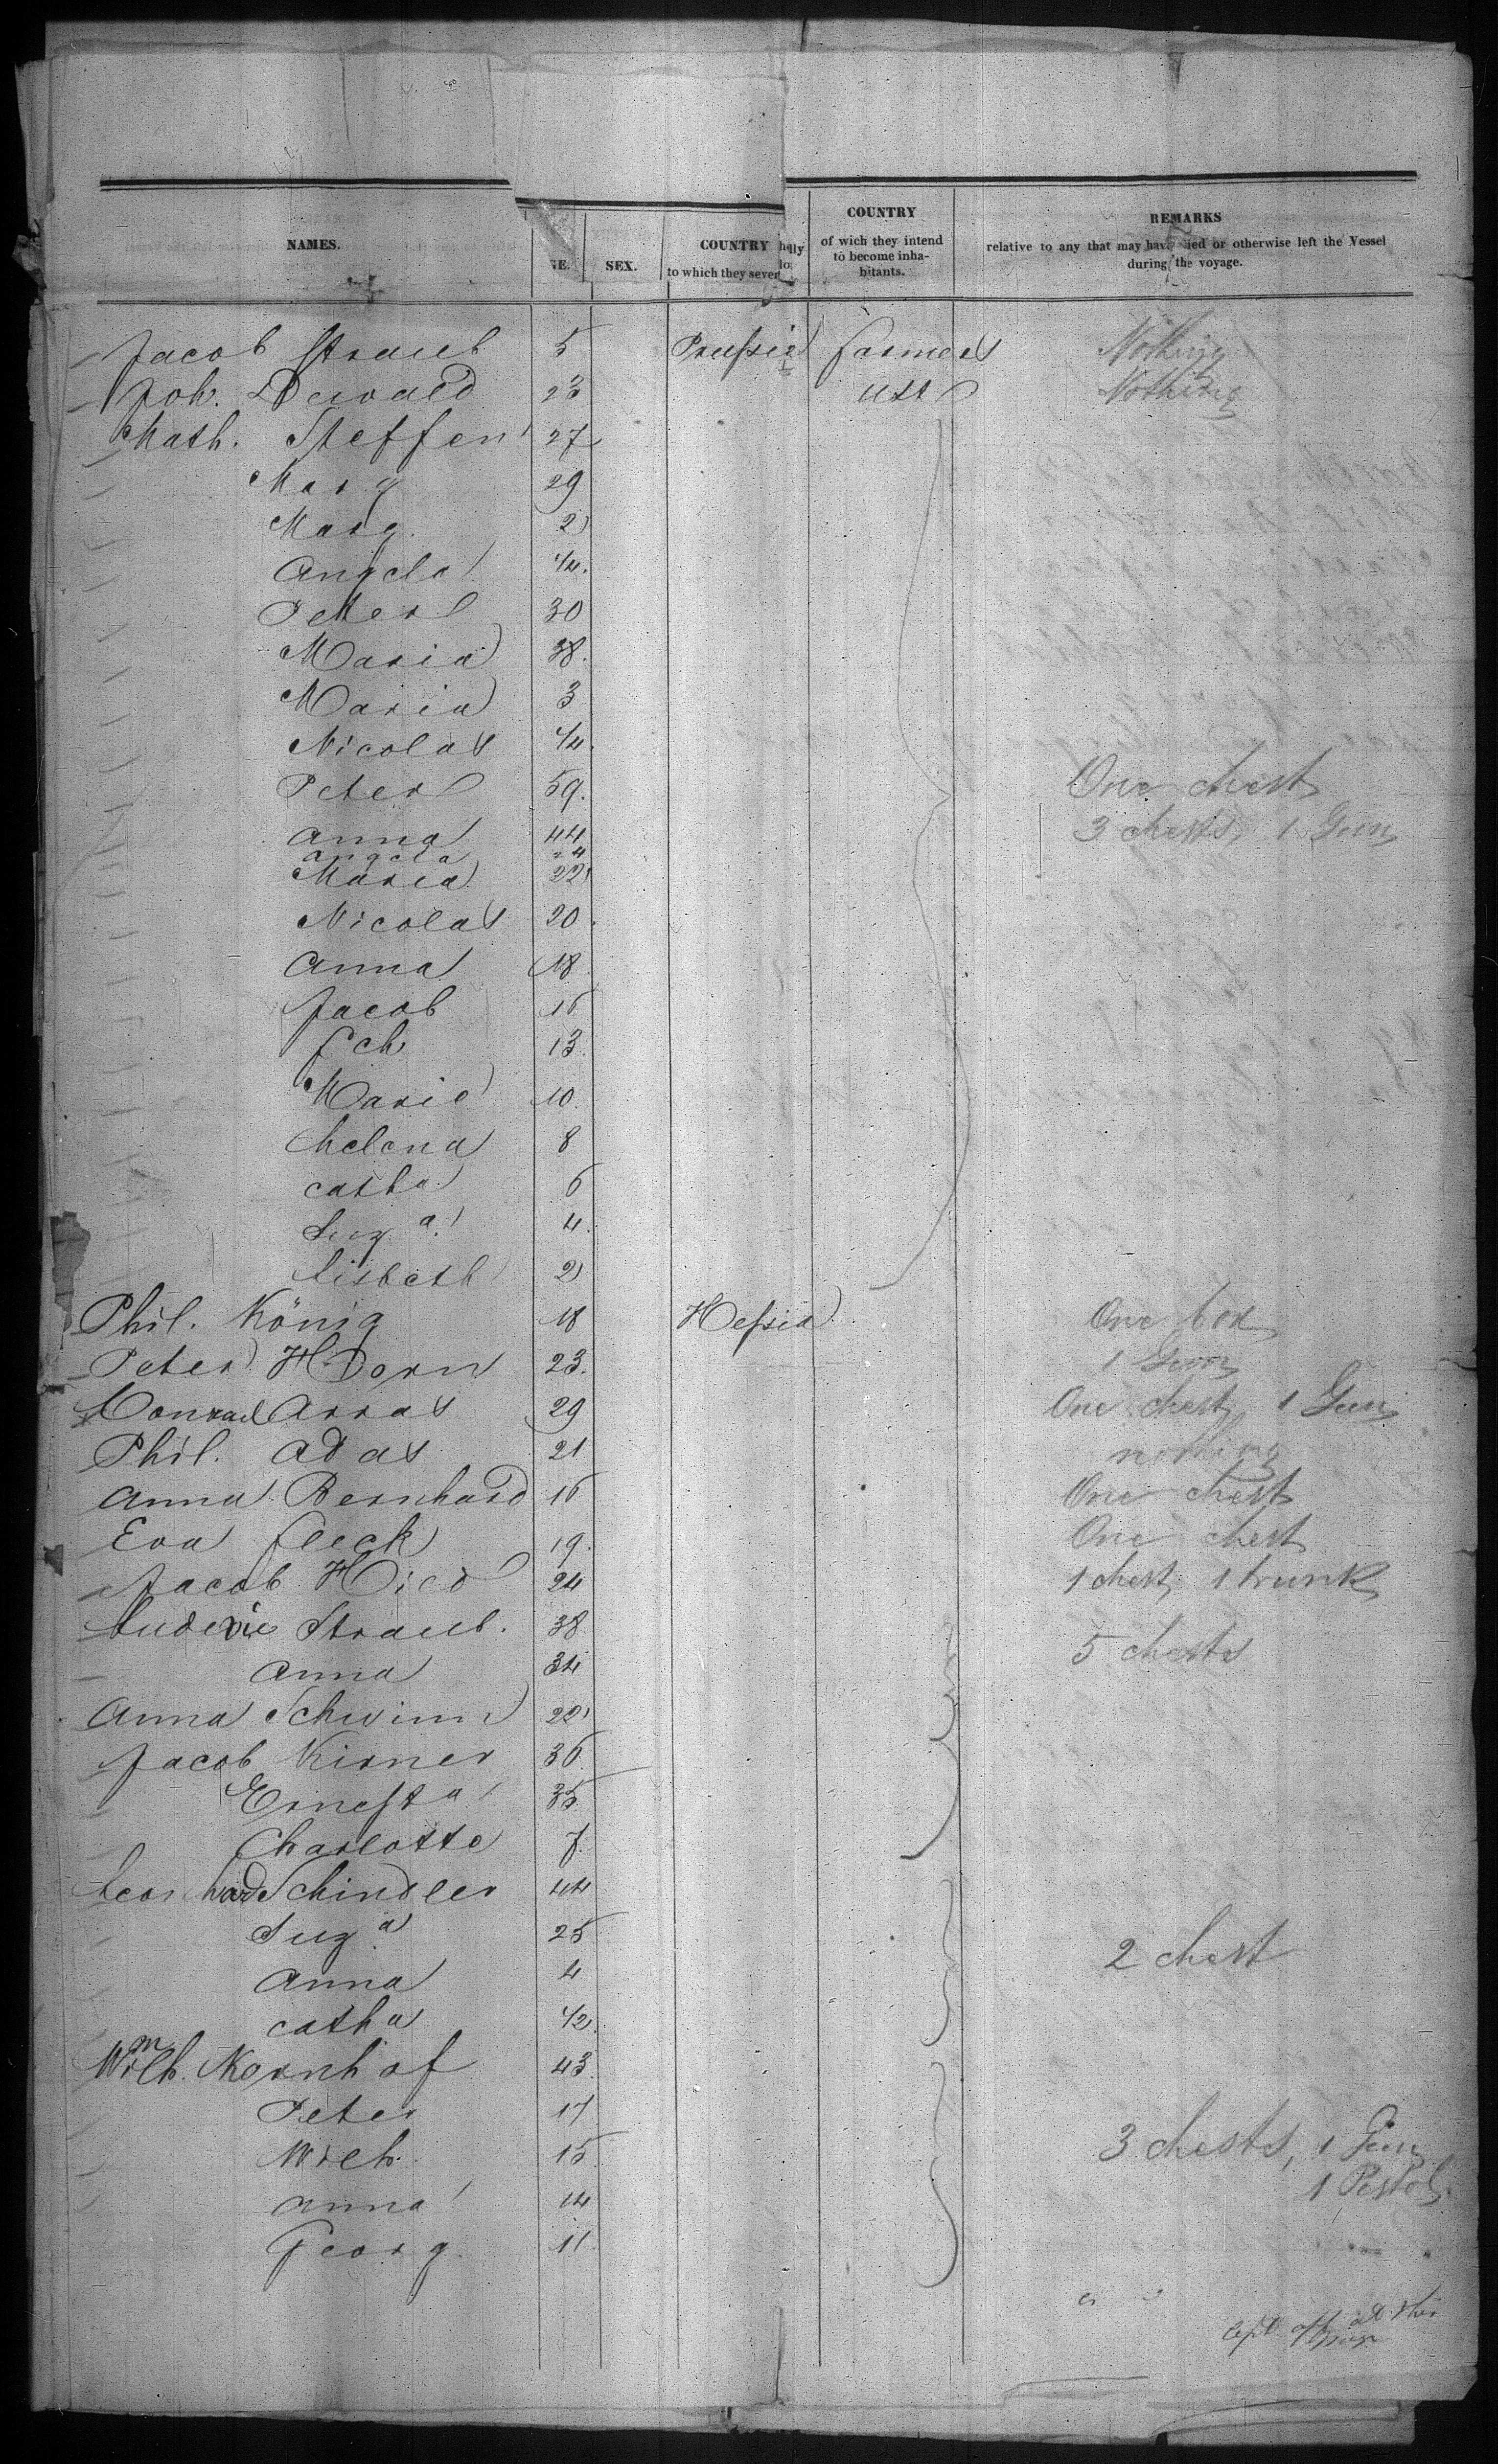 NAMES. GE. SEX. COUNTRY to which they sever COUNTRY of wich they intend to become inhabitants. REMARKS relative to any that may have died or otherwise left the Vessel during the voyage.
Jacob Straub 5 Preussia farmers Nothing
Joh. Dewald 23 USt Nothing
Math. Steffen 27
Marg 29
Marg. 2
Angela 1/4.
Peter 30
Maria 38.
Maria 3
Nicolas 1/4.
Peter 59. One chest
Anna 44 3 chests, 1 Gun
Angela 24
Maria 22
Nicolas 20.
Anna 18.
Jacob 15
Joh 13.
Marie 10.
helena 8
catha 6
Suz a. 4.
Lisbeth 2
Phil. König 18 Hessia One box
Peter H Dorn 23. 1 Gun
Conrad Arras 29 One chest, 1 Gun
Phil. Adas 21 nothing
Anna Bernhard 16 One chest
Eva fleck 19. One chest
Jacob 24 1 chest, 1 trunk
Straub. 38 5 chests
Anna 34
Anna Schwinn 22
Jacob Kirner 36.
Ernesta 35
Charlotte 7.
Leonhard Schindler 44
Suz a 25 2 chest
Anna 4
catha 1/2.
Wilh. Kornhof 43.
Peter 17 3 chests, 1 Gun
Wilh. 15. 1 Pistol.
Anna 14
Georg. 11.